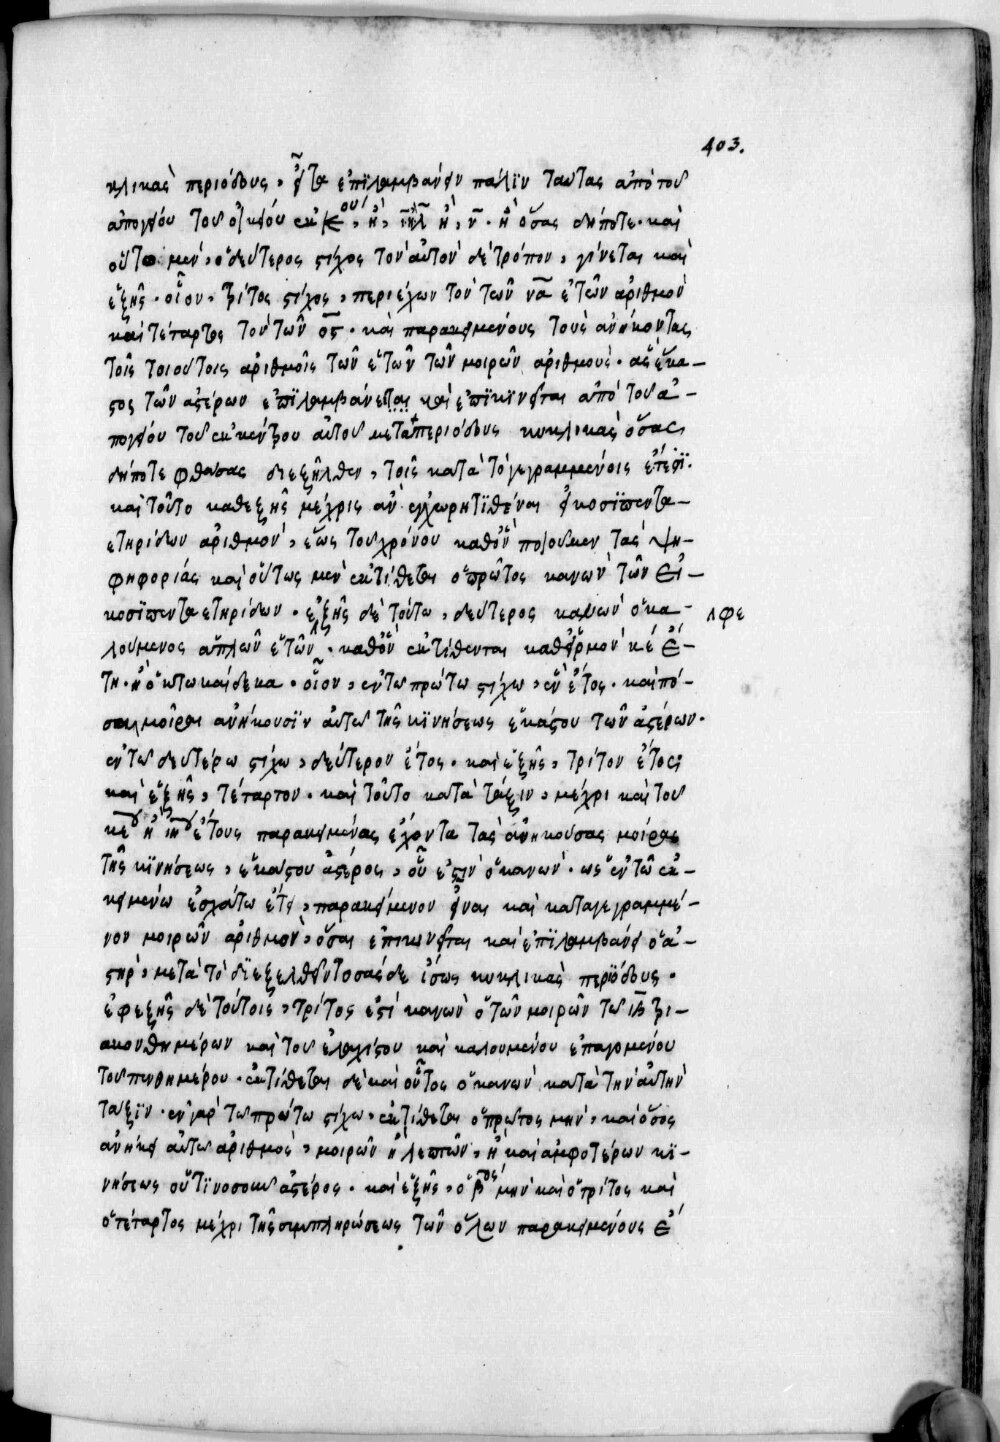 403.
κλικὰς περιόδους, εἶτα ἐπιλαμβάνειν πάλϊν ταύτας ἀπὸ τοῦ
ἀπογείου τοῦ οἰκείου ἢ ὅσας δήποτε. καὶ
οὕτω μὲν, ὁ δεύτερος στίχος τὸν αὐτὸν δὲ τρόπον, γίνεται καὶ
ἑξῆς. οἷον, τρίτος στίχος, περιέχων τὸν τῶν να ἐτῶν ἀριθμὸν
καὶ τέταρτος τὸν τῶν ος. καὶ παρακειμένους τοὺς ἀνήκοντας
τοῖς τοιούτοις ἀριθμοῖς τῶν ἐτῶν τῶν μοιρῶν ἀριθμούς. ἃς ἕκα-
στος τῶν ἀστέρων ἐπϊλαμβάνεται καὶ ἐπϊκϊνεῖται ἀπὸ τοῦ ἀ-
πογείου τοῦ ἐκκέντρου αὐτοῦ μετὰ περιόδους κυκλικὰς ὅσας
δήποτε φθάσας διεξῆλθεν, τοῖς κατὰ τὸ γεγραμμένοις ἔτεσϊ.
καὶ τοῦτο καθεξῆς μέχρις ἂν ἐγχωρῇ τϊθέναι εἰκοσϊπεντα-
ετηρίδων ἀριθμὸν, ἕως τοῦ χρόνου καθ' ὃν ποιοῦμεν τὰς ψη-
φηφορίας καὶ οὕτως μὲν ἐκτίθεται ὁ πρῶτος κανὼν τῶν εἰ-
κοσϊπενταετηρίδων. ἑξῆς δὲ τούτω, δεύτερος κανὼν ὁ κα-
λούμενος ἁπλῶν ἐτῶν. καθ' ὃν ἐκτίθενται καθ' εἱρμὸν κέ ἔ-
τη. ἢ ὀκτωκαίδεκα. οἷον, ἐν τῶ πρώτω στίχω, ἓν ἔτος. καὶ πό-
σαι μοῖραι ἀνήκουσϊν αὐτῶ τῆς κϊνήσεως ἑκάστου τῶν ἀστέρων.
ἐν τῶ δευτέρω στίχω, δεύτερον ἔτος. καὶ ἑξῆς, τρίτον ἔτος,
καὶ ἑξῆς, τέταρτον. καὶ τοῦτο κατὰ τάξιν, μέχρι καὶ τοῦ
κεου ἢ ιηου ἔτους παρακειμένας ἔχοντα τὰς ἀνηκούσας μοίρας
τῆς κϊνήσεως, ἑκάστου ἀστέρος, οὗ ἐστιν ὁ κανών. ὡς ἐν τῶ ἐκ-
κειμένω ἐσχάτω ἔτει, παρακείμενον εἶναι καὶ καταγεγραμμέ-
νον μοιρῶν ἀριθμὸν, ὅσαι ἐπικινεῖται καὶ ἐπϊλαμβάνει ὁ ἀ-
στὴρ, μετὰ τὸ δϊεξελθεῖν τοσάσδε ἴσως κυκλικὰς περϊόδους.
ἐφεξῆς δὲ τούτοις, τρίτος ἐστὶ κανὼν ὁ τῶν μοιρῶν τῶ ιβ τρι-
ακονθημέρων καὶ τοῦ ἐλαχίστου καὶ καλουμένου ἐπαγομένου
τοῦ πενθημέρου. ἐκτίθεται δὲ καὶ οὗτος ὁ κανὼν κατὰ τὴν αὐτὴν
τάξϊν. ἐν γὰρ τῶ πρώτω στίχω, ἐκτίθεται ὁ πρῶτος μὴν, καὶ ὅσος
ἀνήκει αὐτῶ ἀριθμὸς, μοιρῶν ἢ λεπτῶν, ἢ καὶ ἀμφοτέρων κϊ-
νήσεως οὗτϊνοσοῦν ἀστέρος. καὶ ἑξῆς, ὁ βος μὴν καὶ ὁ τρίτος καὶ
ὁ τέταρτος μέχρι τῆς συμπληρώσεως τῶν ὅλων παρακειμένους ἔ
λφε